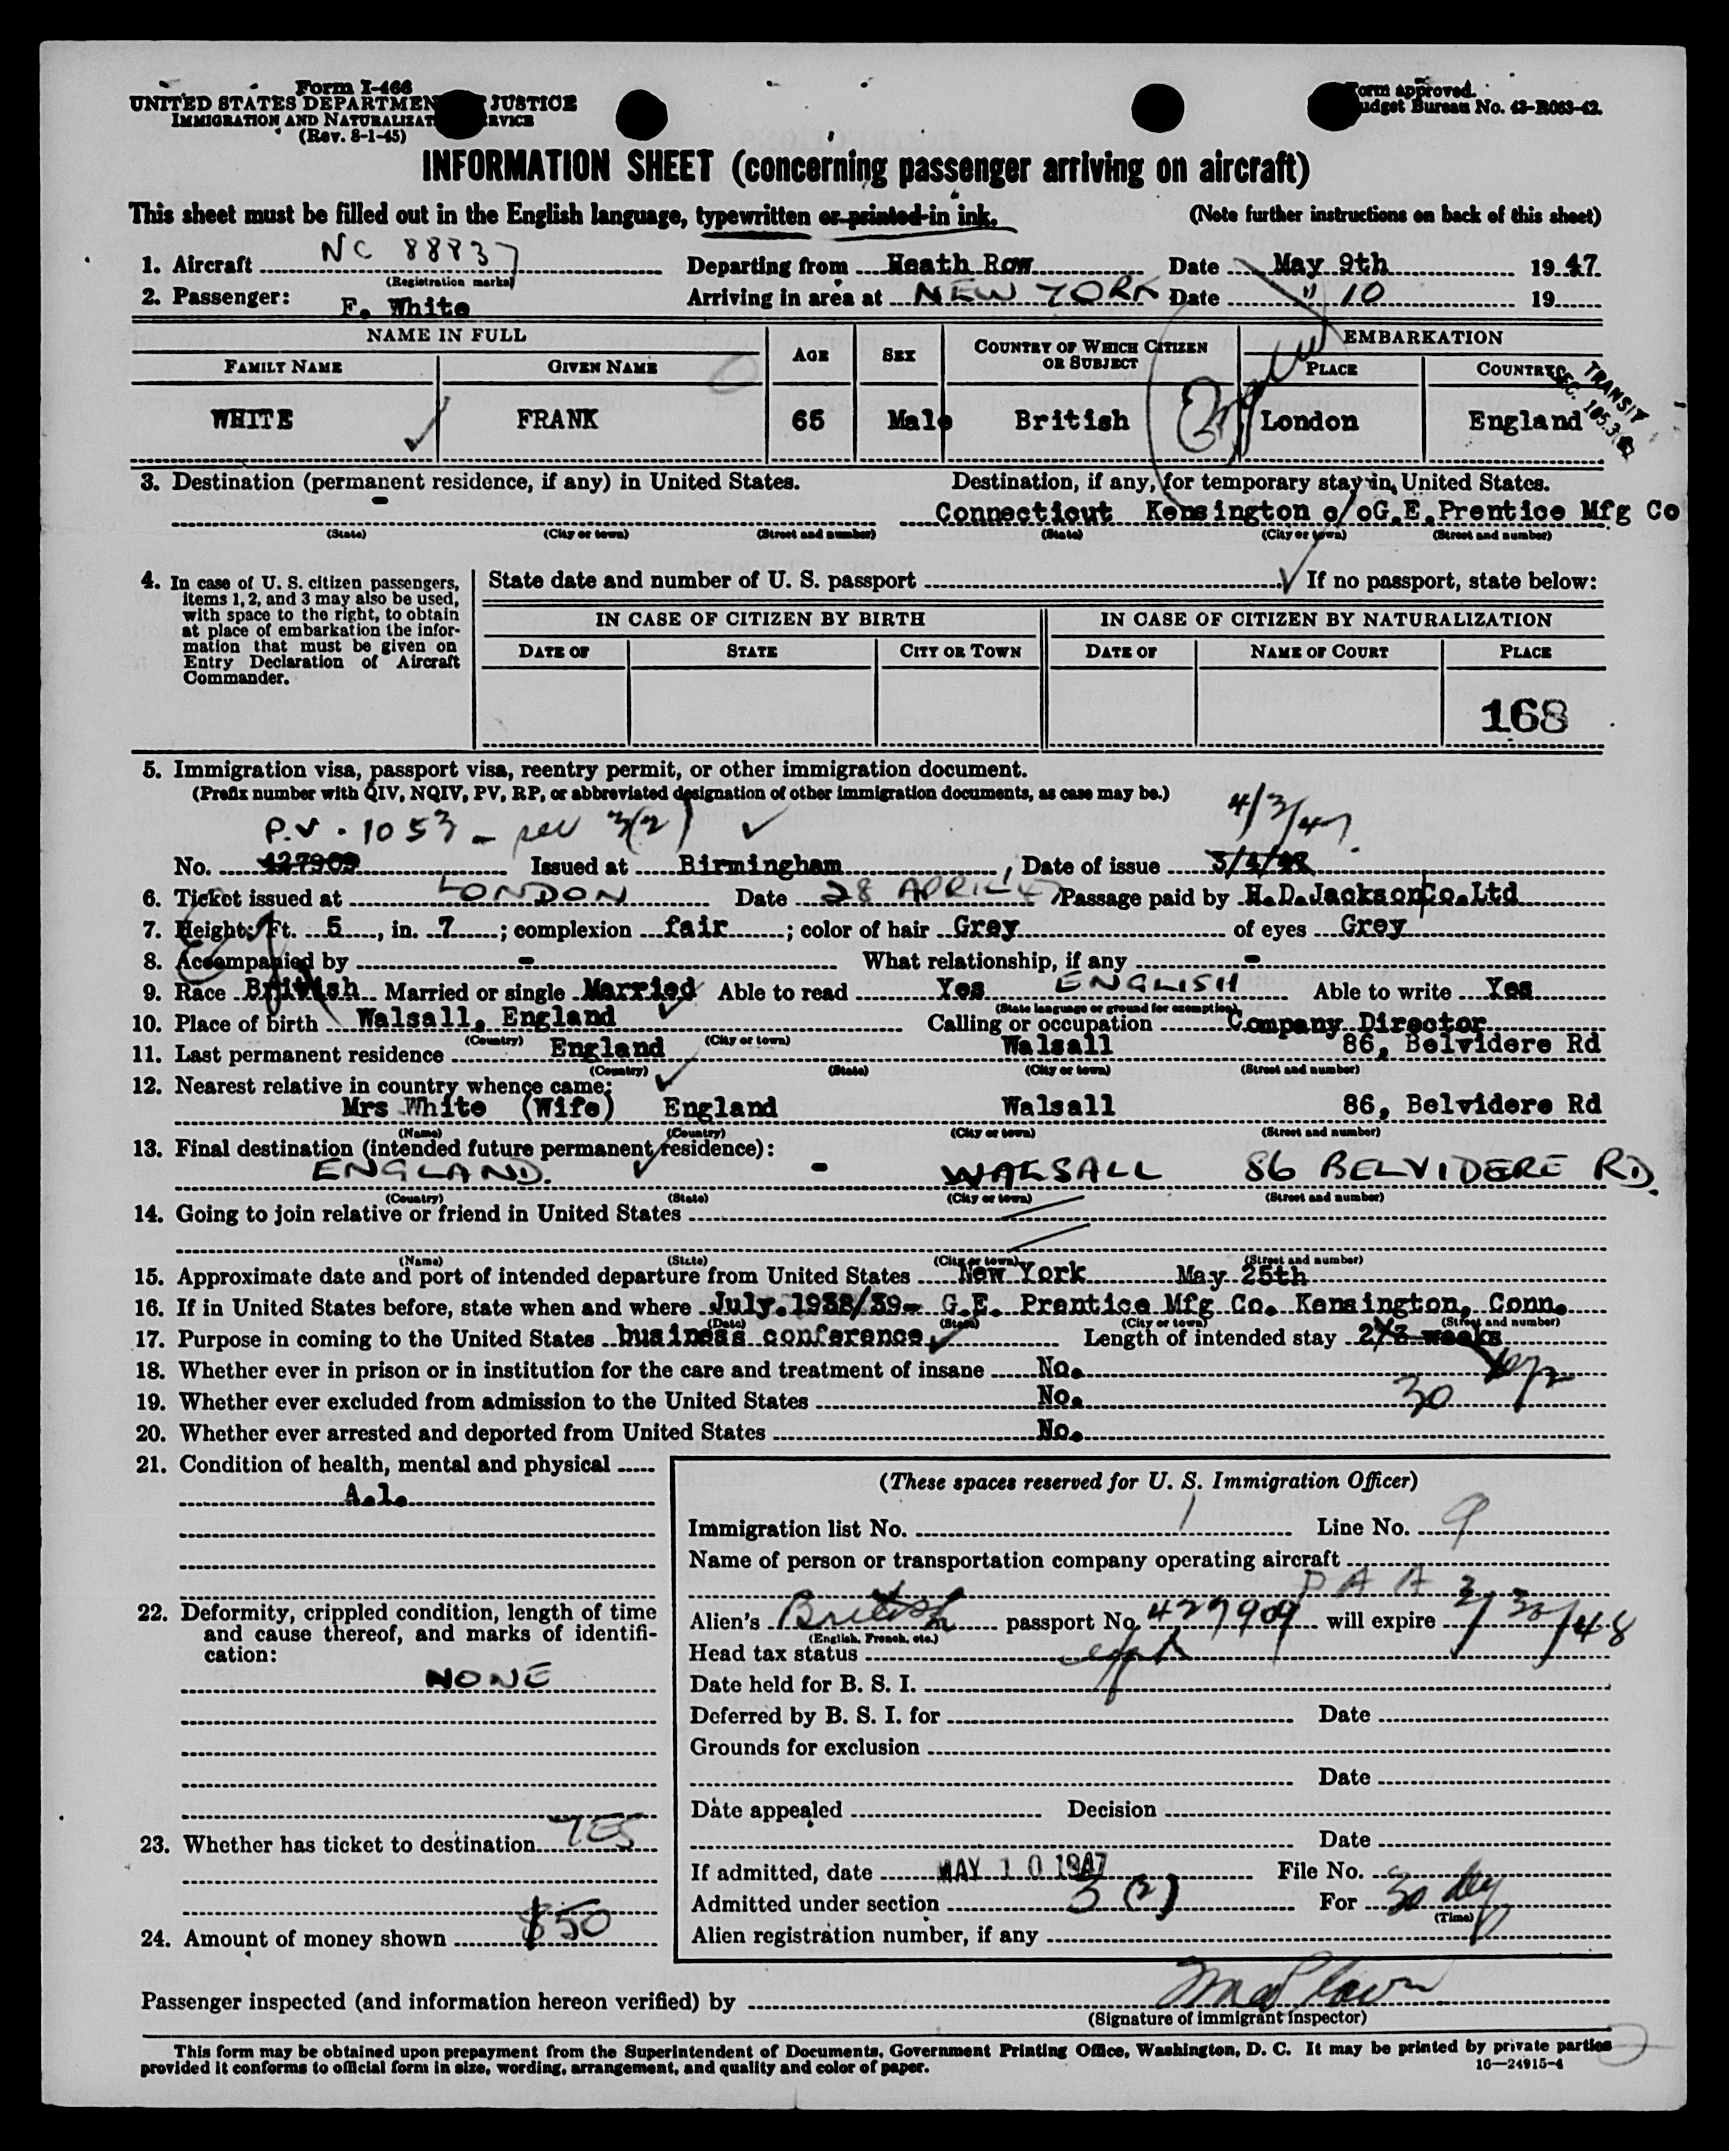 Form I-466
UNITED STATES DEPARTMEN JUSTICE
IMMIGRATION AND NATURALIZAT RVICE
(Rev. 8-1-45)
orm approved.
udget Bureau No. 43-R063-42.
INFORMATION SHEET (concerning passenger arriving on aircraft)
This sheet must be filled out in the English language, typewritten or printed in ink.
(Note further instructions on back of this sheet)
1. Aircraft NC 88837 Departing from Heath Row Date May 9th 1947
(Registration marks)
2. Passenger: F. White Arriving in area at NEW YORK Date " 10 19
NAME IN FULL AGE SEX COUNTRY OF WHICH CITIZEN OR SUBJECT EMBARKATION
FAMILY NAME GIVEN NAME PLACE COUNTRY
TRANSIT
WHITE FRANK 65 Male British London England
3. Destination (permanent residence, if any) in United States. Destination, if any, for temporary stay in United States.
- Connecticut Kensington c/oG.E.Prentice Mfg Co
(State) (City or town) (Street and number) (State) (City or town) (Street and number)
4. In case of U. S. citizen passengers, items 1, 2, and 3 may also be used, with space to the right, to obtain at place of embarkation the information that must be given on Entry Declaration of Aircraft Commander.
State date and number of U. S. passport If no passport, state below:
IN CASE OF CITIZEN BY BIRTH IN CASE OF CITIZEN BY NATURALIZATION
DATE OF STATE CITY OR TOWN DATE OF NAME OF COURT PLACE
168
5. Immigration visa, passport visa, reentry permit, or other immigration document.
(Prefix number with QIV, NQIV, PV, RP, or abbreviated designation of other immigration documents, as case may be.)
P.V. 1053 - sec 3(2) 4/3/47.
No. 427909 Issued at Birmingham, Date of issue
6. Ticket issued at LONDON Date 28 APRIL 47 Passage paid by H.D.JacksonCo.Ltd
7. Height: Ft. 5, in. 7; complexion fair; color of hair Grey of eyes Grey
8. Accompanied by - What relationship, if any -
9. Race British Married or single Married Able to read Yes ENGLISH Able to write Yes
(State language or ground for exemption)
10. Place of birth Walsall, England Calling or occupation Company Director
(Country) (City or town)
11. Last permanent residence England Walsall 86, Belvidere Rd
(Country) (State) (City or town) (Street and number)
12. Nearest relative in country whence came:
Mrs White (Wife) England Walsall 86, Belvidere Rd
(Name) (Country) (City or town) (Street and number)
13. Final destination (intended future permanent residence):
ENGLAND. - WALSALL 86 BELVIDERE RD.
(Country) (State) (City or town) (Street and number)
14. Going to join relative or friend in United States
(Name) (State) (City or town) (Street and number)
15. Approximate date and port of intended departure from United States New York May 25th
16. If in United States before, state when and where July.1938/39- G.E. Prentice Mfg Co. Kensington, Conn.
(Date) (State) (City or town) (Street and number)
17. Purpose in coming to the United States business conference Length of intended stay 2 weeks
18. Whether ever in prison or in institution for the care and treatment of insane No.
30 days
19. Whether ever excluded from admission to the United States No.
20. Whether ever arrested and deported from United States No.
21. Condition of health, mental and physical
A.1.
22. Deformity, crippled condition, length of time and cause thereof, and marks of identification:
NONE
23. Whether has ticket to destination YES
24. Amount of money shown $50
(These spaces reserved for U. S. Immigration Officer)
Immigration list No. 1 Line No. 9
Name of person or transportation company operating aircraft
P A A
Alien's British passport No. 427909 will expire 3/30/48
(English, French, etc.)
Head tax status
Date held for B. S. I.
Deferred by B. S. I. for Date
Grounds for exclusion
Date
Date appealed Decision
Date
If admitted, date MAY 10 1947 File No.
Admitted under section 3 (2) For 30 days
(Time)
Alien registration number, if any
Passenger inspected (and information hereon verified) by
(Signature of immigrant inspector)
This form may be obtained upon prepayment from the Superintendent of Documents, Government Printing Office, Washington, D. C. It may be printed by private parties
provided it conforms to official form in size, wording, arrangement, and quality and color of paper.
16—24915-4